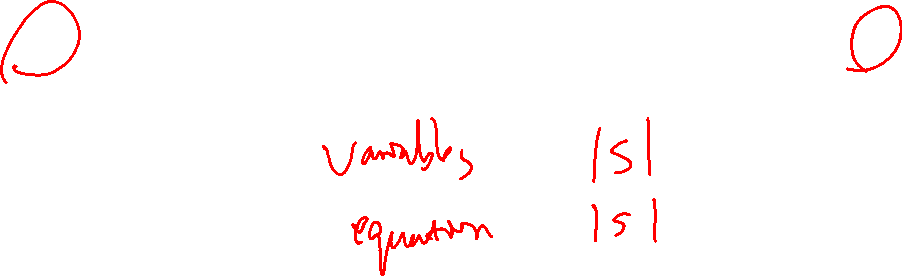 variables |S|
equation |S|